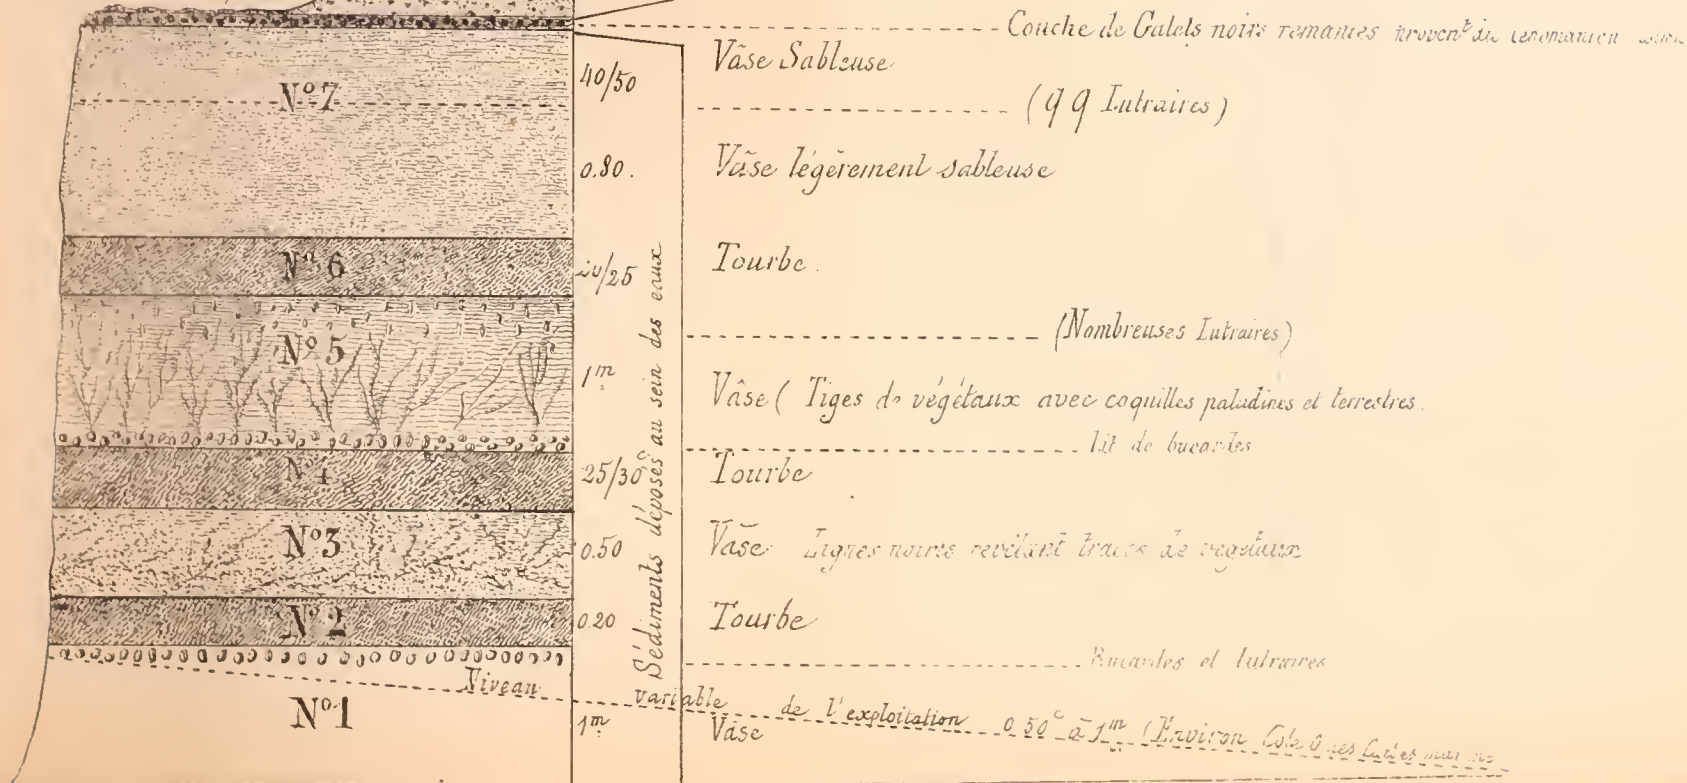 Couche de Galets noirs remaniés provent du cenomanien
Vâse Sableuse
Nº 7
40/50
(qq Lutraires)
0.80.
Vâse légèrement sableuse
Nº 6
/25
Tourbe.
(Nombreuses Lutraires)
Nº 5
1m
Vâse ( Tiges de végétaux avec coquilles paludines et terrestres.
lit de bucardes
Nº 4
25/30c
Tourbe
Nº 3
0.50
Vase Lignes noires révélant traces de végétaux
Nº 2
0.20
Tourbe
Bucardes et lutraires
Sédiments déposés au sein des eaux
Niveau variable de l'exploitation 0.50c à 1m (Environ Cote 0 des Cartes marines
Nº 1
1m
Vâse